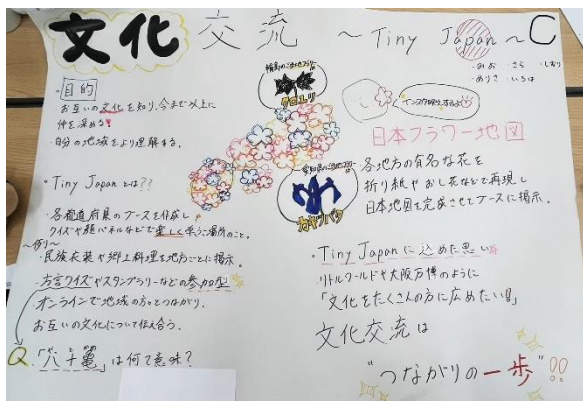 文化交流 ～Tiny Japan～ C
・みお ・さら ・しおり
・ありさ ・いろは
・目的
お互いの文化を知り、今まで以上に
仲を深める
・自分の地域をより理解する。
・Tiny Japanとは??
・各都道府県のブースを作成し
クイズや顔パネルなどで楽しく学ぶご場所のこと。
～例～
・民族衣装や郷土料理を地方ごとに掲示。
・方言クイズやスタンプラリーなどの参加型
オンラインで地域の方とつながり、
お互いの文化について伝え合う。
Q.「八十亀」は何て意味?
クロユリ
カキツバタ
日本フラワー地図
各地方の有名な花を
折り紙やおし花などで再現し
日本地図を完成させてブースに掲示。
Tiny Japanに込めた思い
リトルワールドや大阪万博のように
「文化をたくさんの方に広めたい!」
文化交流は
"つながりの一歩"!!